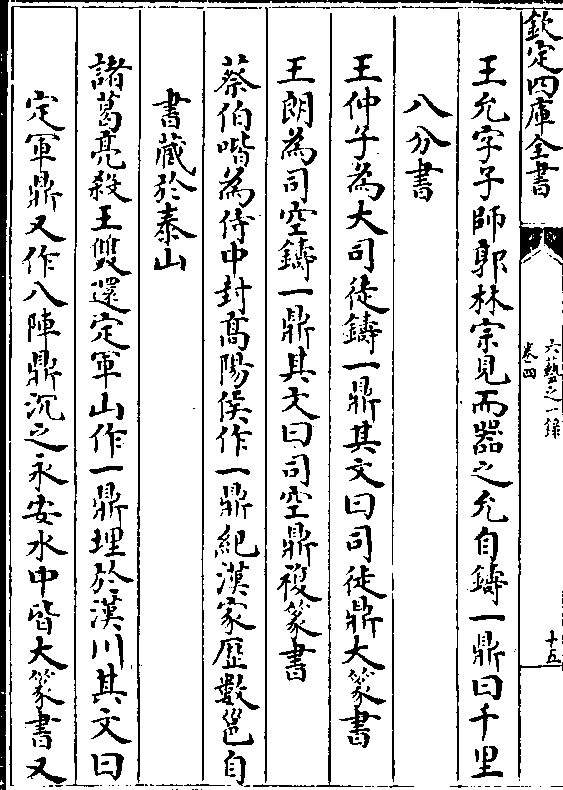 欽定四庫全書
六藝之一錄
卷四
十五
王允字子師郭林宗見而器之允自鑄一鼎曰千里
八分書
王仲子為大司徒鑄一鼎其文曰司徒鼎大篆書
王朗為司空鑄一鼎其文曰司空鼎複篆書
蔡伯喈為侍中封高陽侯作一鼎紀漢家歴數邕自
書藏於泰山
諸葛亮殺王雙還定軍山作一鼎埋於漢川其文曰
定軍鼎又作八陣鼎沉之永安水中皆大篆書又